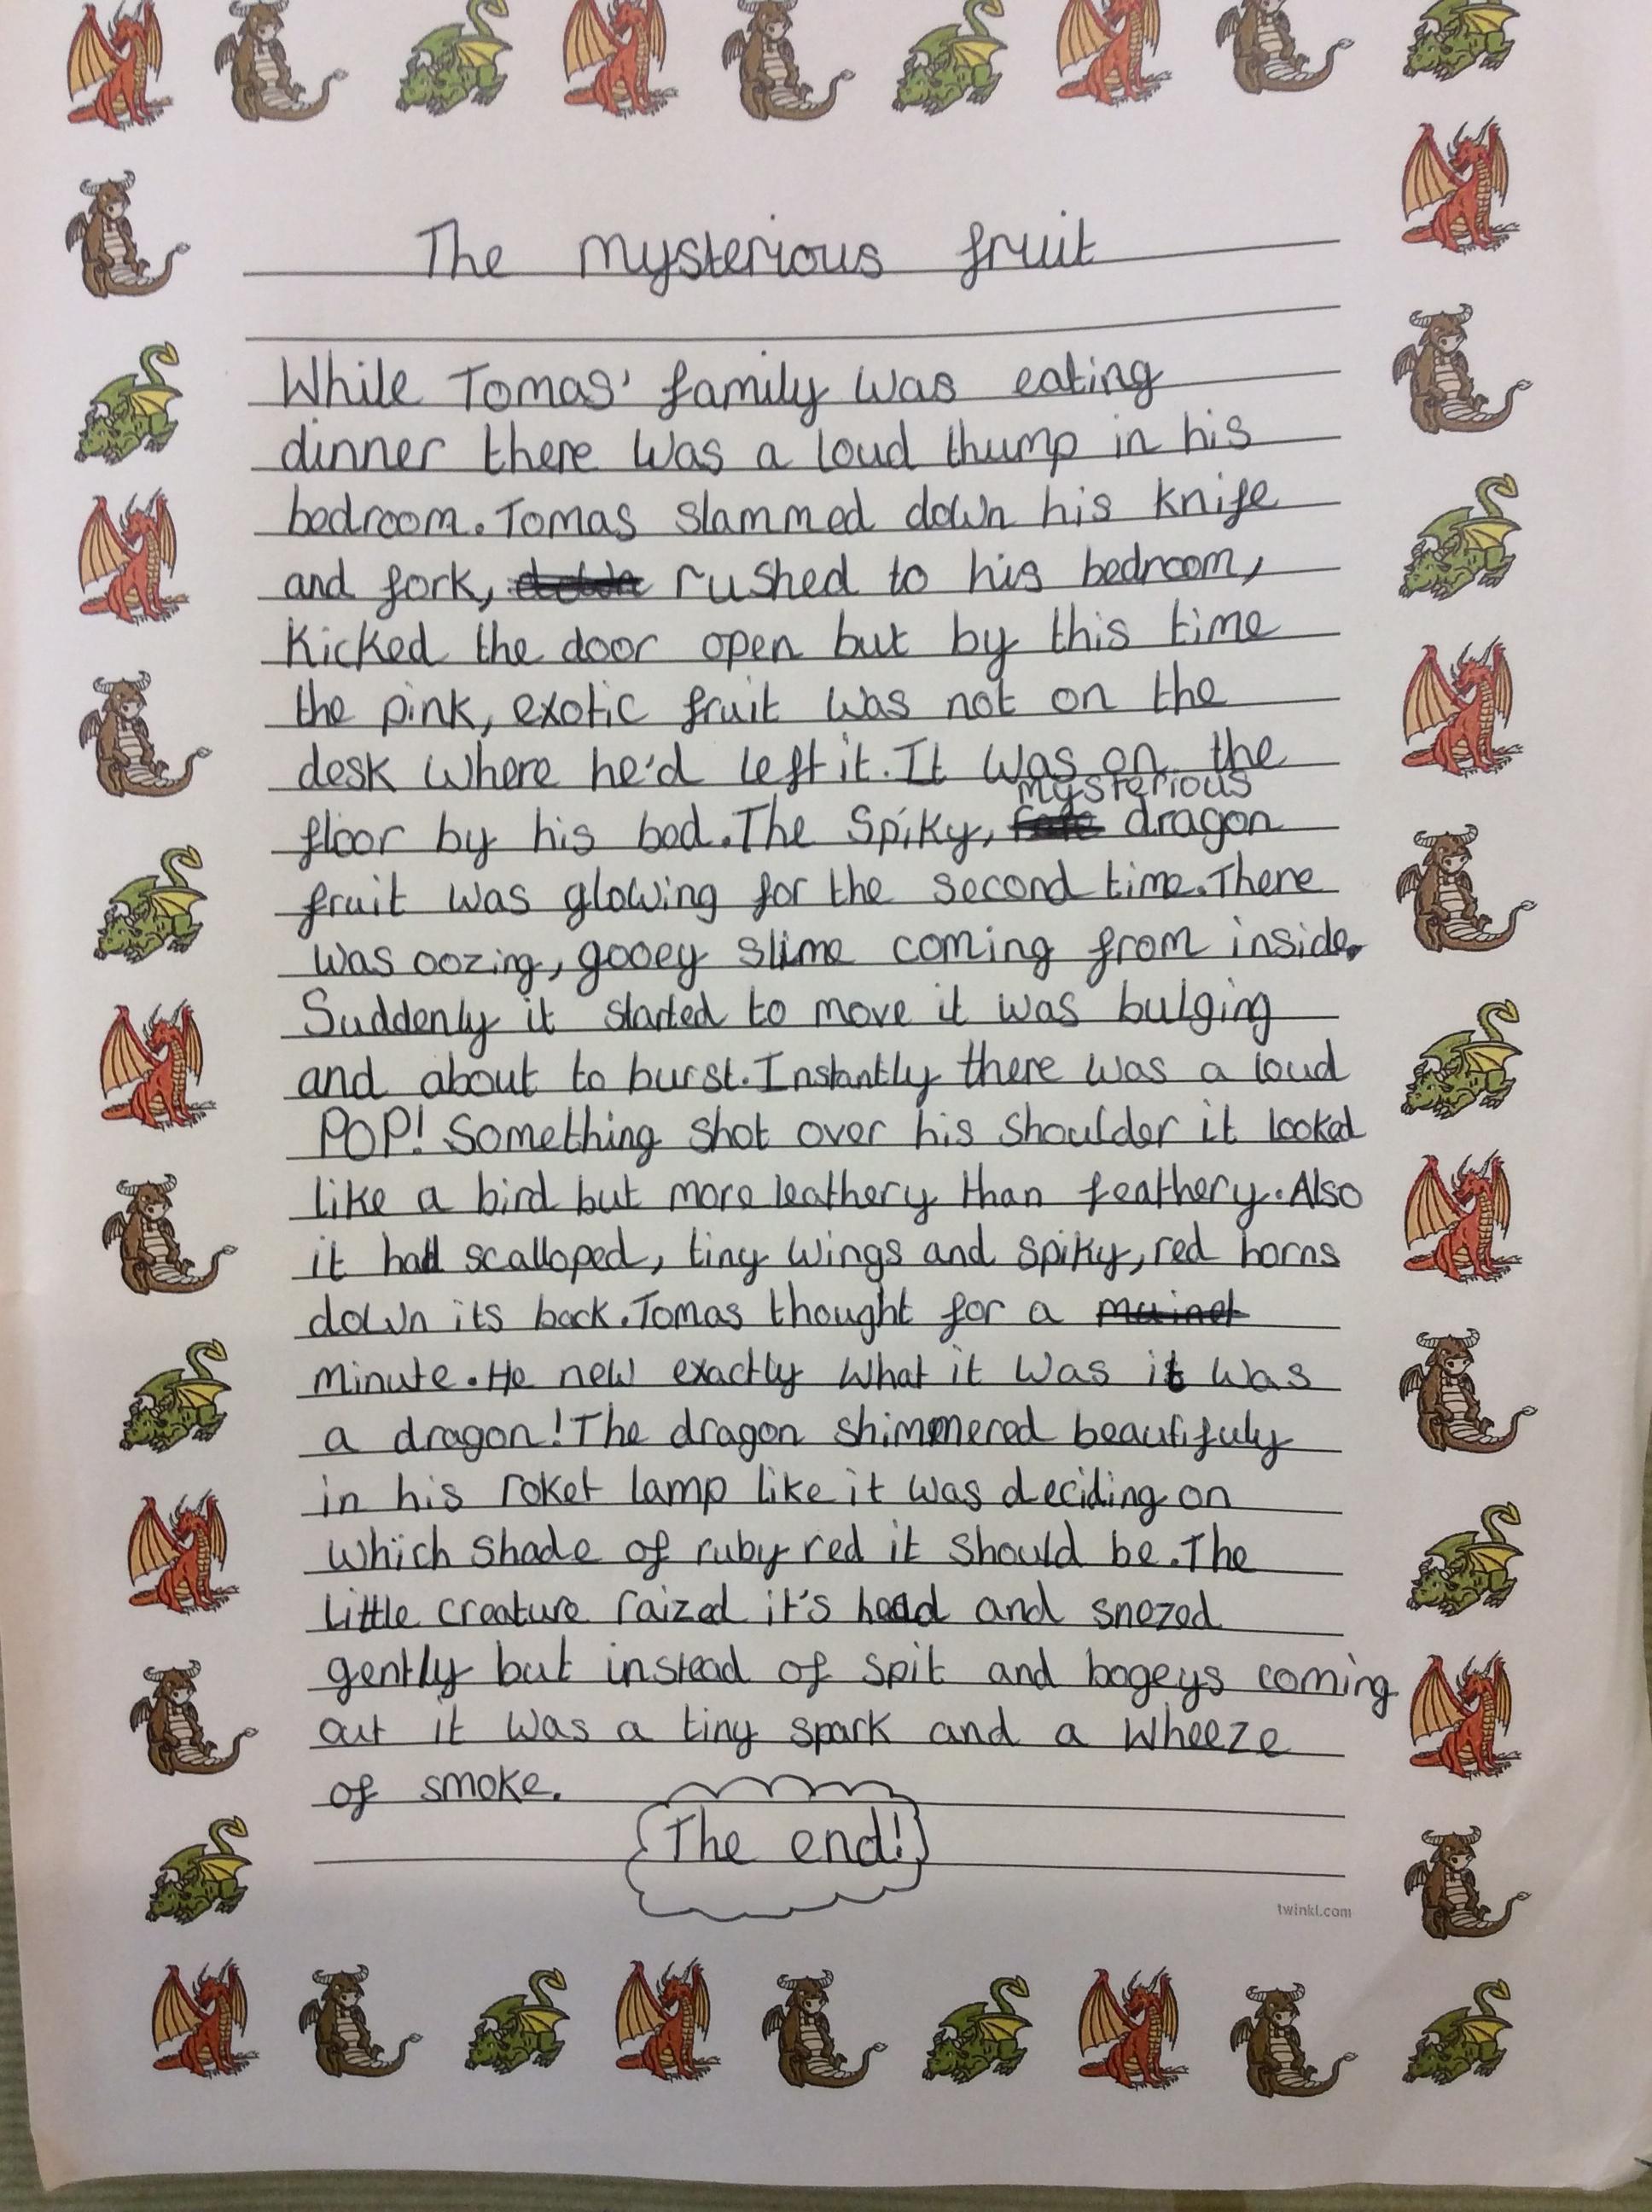 The mysterious fruit
While Tomas' family was eating
dinner there was a loud thump in his
bedroom. Tomas slammed down his knife
and fork, down rushed to his bedroom,
Kicked the door open but by this time
the pink, exotic fruit was not on the
desk where he'd left it. It was on the
mysterious
floor by his bed. The Spiky, dragon
fruit was glowing for the second time. There
was oozing, gooey slime coming from inside.
Suddenly it started to move it was bulging
and about to burst. Instantly there was a loud
POP! Something shot over his shoulder it looked
like a bird but more leathery than feathery. Also
it had scalloped, tiny wings and spiky, red horns
down its back. Tomas thought for a muinet
minute. He new exactly what it was it was
a dragon! The dragon shimmered beautifuly
in his roket lamp like it was deciding on
which shade of ruby red it should be. The
little creature raized it's head and snezed
gently but instead of spit and bogeys coming
out it was a tiny spark and a wheeze
of smoke.
The end!
twinkl.com